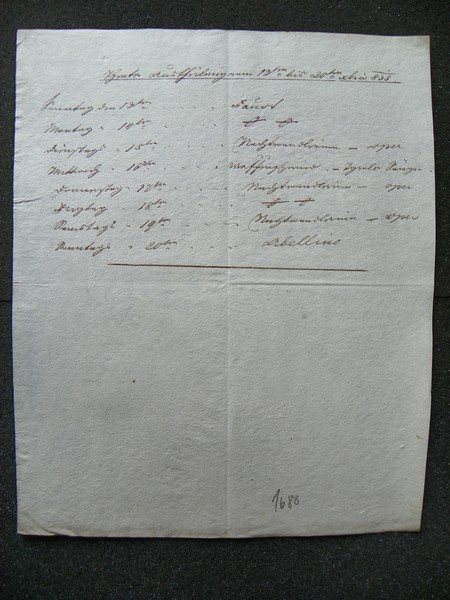 Theater Austheilung vom 13ten bis 20ten Xbris 835.
Sonntag den 13ten . . . Faust
Montag " 14ten . . .
Dienstag " 15ten . . Nachtwandlerin – oper
Mittwoch " 16ten . . – Tyroler Sänger
Donnerstag " 17ten . . Nachtwandlerin – oper
Freytag " 18ten . .
Samstag " 19ten . . Nachtwandlerin – oper
Sonntag " 20ten . . Abellino
1688